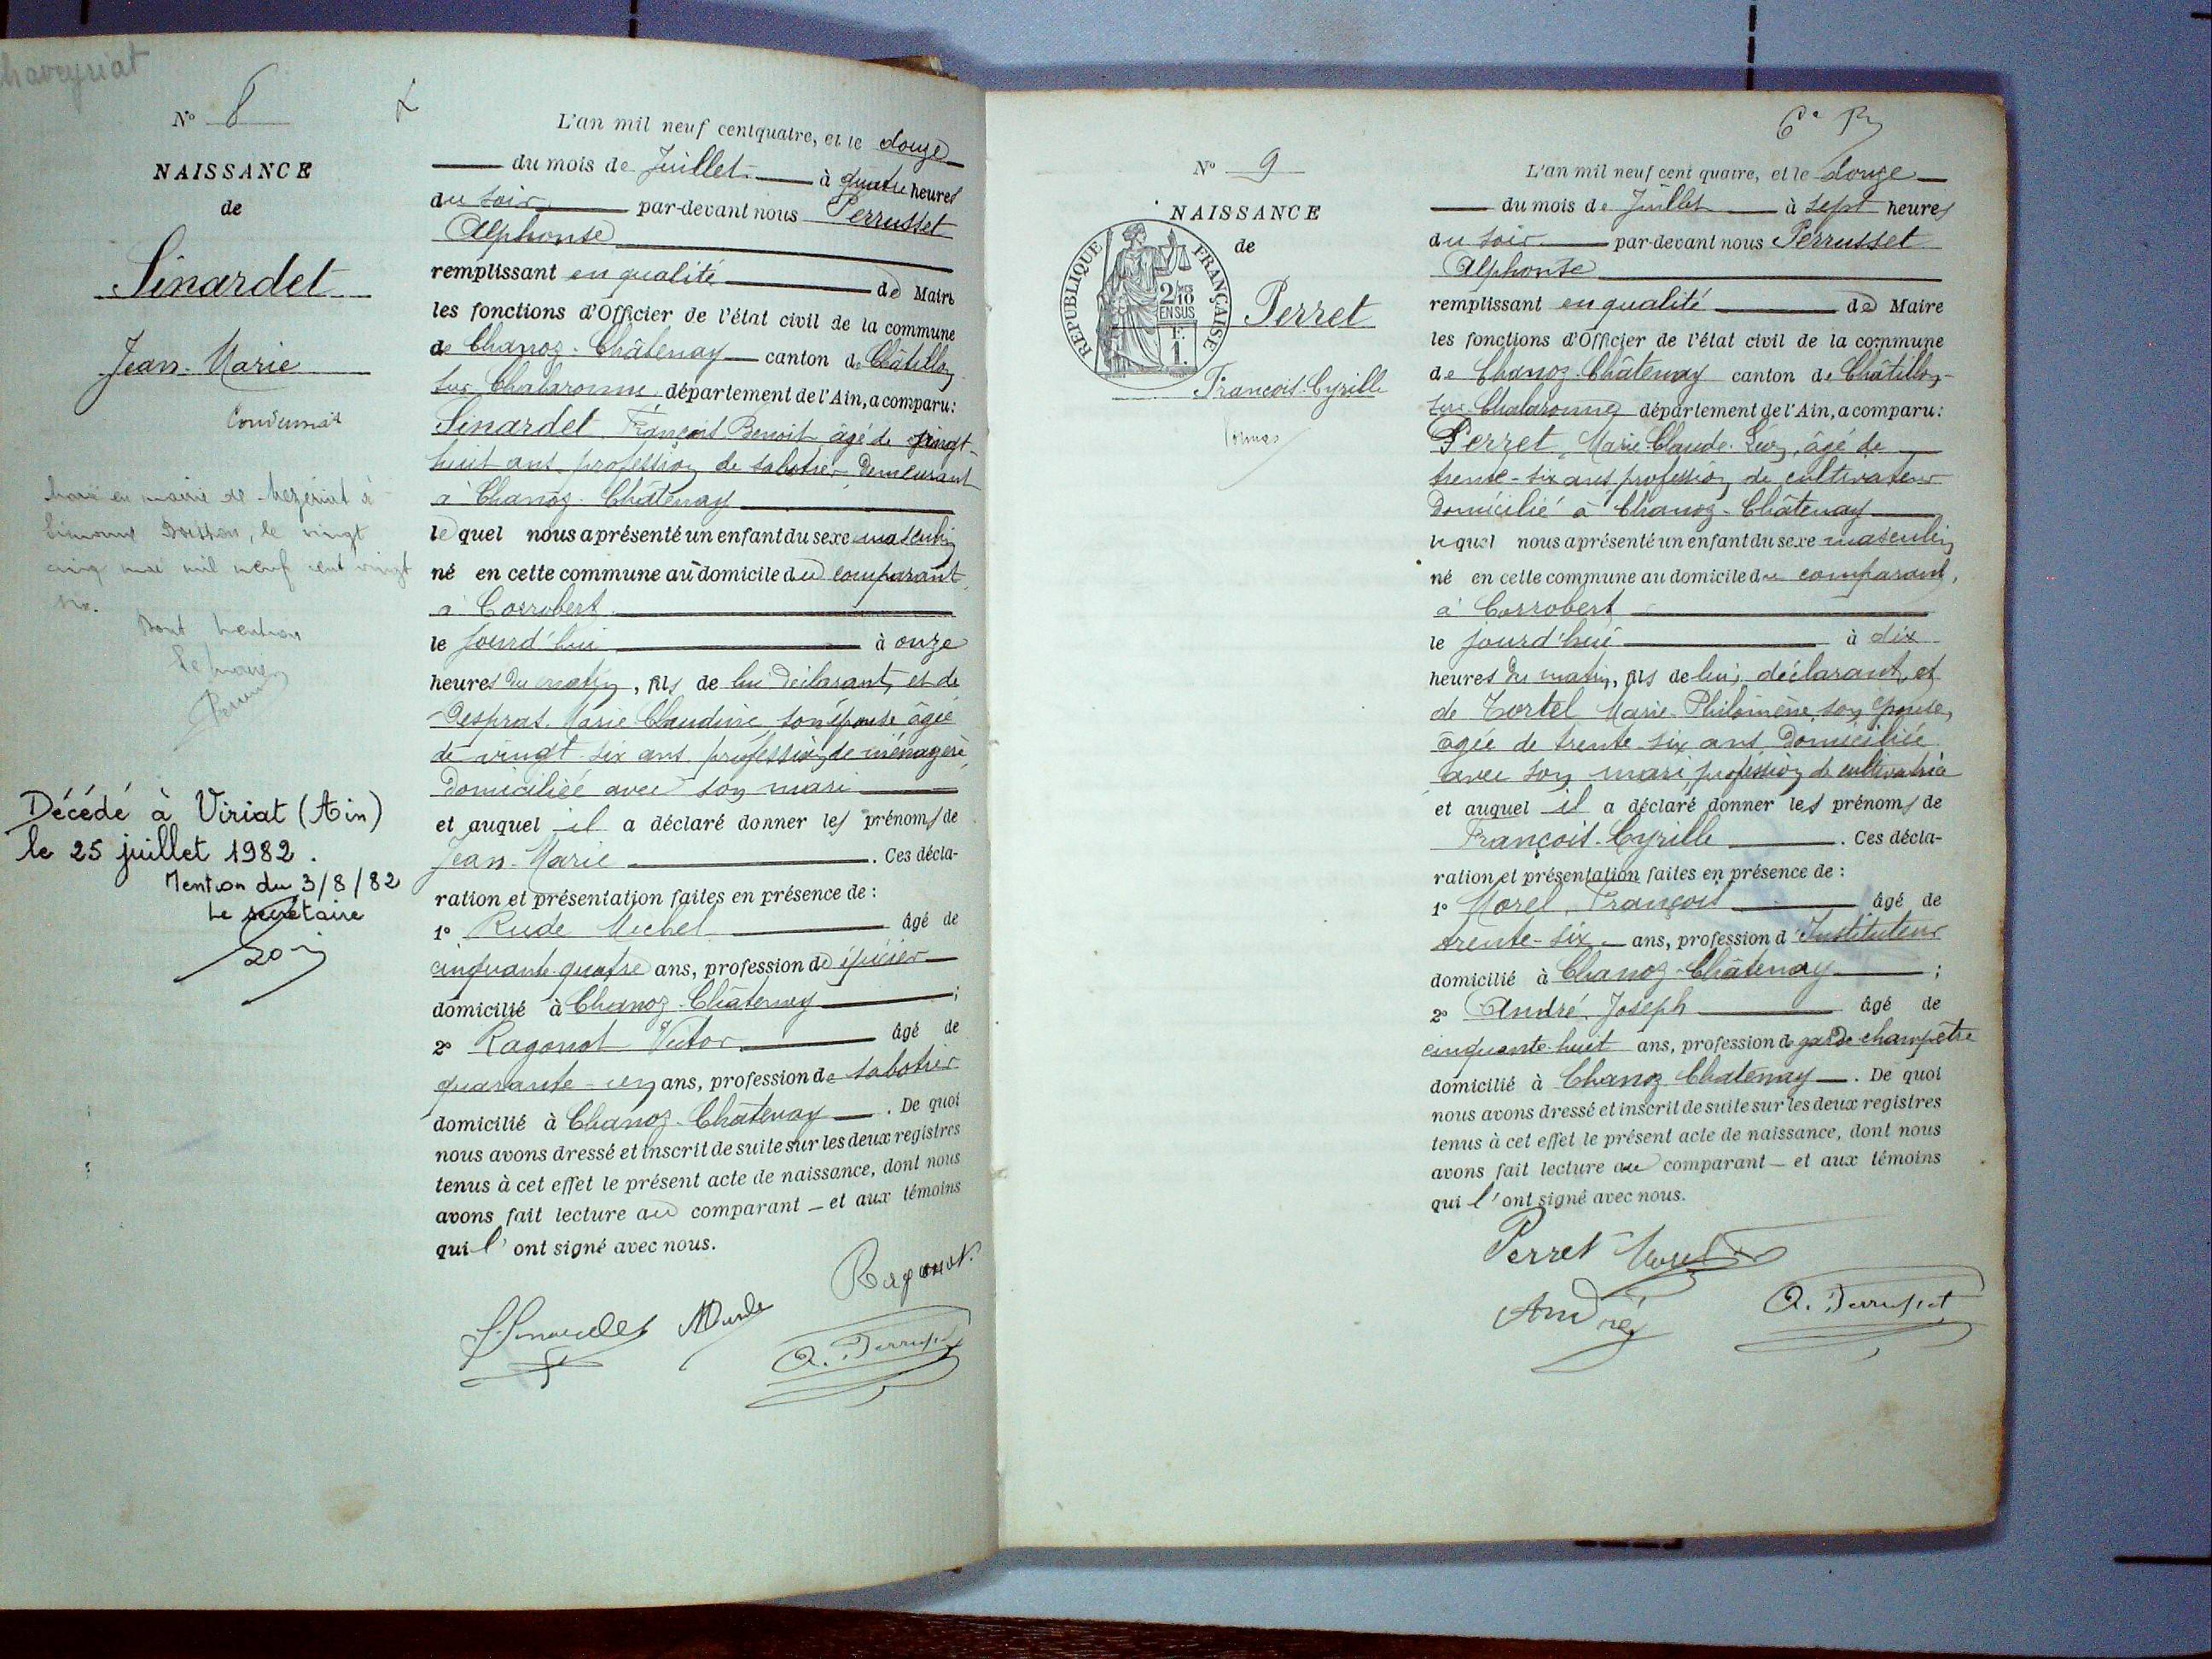 N° 8
NAISSANCE
de
Sinardet
Jean-Marie
le vingt
cinq mai mil neuf cent vingt
six.
Dont mention
Le maire
Décédé à Viriat (Ain)
le 25 juillet 1982.
Mention du 3/8/82
Le secrétaire
L'an mil neuf cent quatre, et le douze
du mois de Juillet à quatre heures
du soir par-devant nous Perrusset
Alphonse
remplissant en qualité de Maire
les fonctions d'Officier de l'état civil de la commune
de Chanoz-Châtenay canton de Châtillon
sur Chalaronne département de l'Ain, a comparu:
Sinardet François Benoit âgé de vingt-
huit ans profession de sabotier demeurant
à Chanoz-Châtenay
le quel nous a présenté un enfant du sexe masculin
né en cette commune au domicile du comparant,
à Corrobert
le jourd'hui à onze
heures du matin, fils de lui déclarant, et de
Desprat Marie Claudine, son épouse âgée
de vingt-six ans, profession de ménagère,
domiciliée avec son mari
et auquel il a déclaré donner les prénoms de
Jean-Marie. Ces décla-
ration et présentation faites en présence de:
1° Rude Michel âgé de
cinquante-quatre ans, profession de épicier
domicilié à Chanoz-Châtenay;
2° Ragonot Victor âgé de
quarante-un ans, profession de sabotier
domicilié à Chanoz-Châtenay. De quoi
nous avons dressé et inscrit de suite sur les deux registres
tenus à cet effet le présent acte de naissance, dont nous
avons fait lecture au comparant et aux témoins
qui l'ont signé avec nous.
Ragonot.
A. Perrusset
6e
N° 9
NAISSANCE
de
RÉPUBLIQUE FRANÇAISE
2/10
EN SUS
1 F.
Perret
François-Cyrille
L'an mil neuf cent quatre, et le douze
du mois de Juillet à sept heures
du soir par-devant nous Perrusset
Alphonse
remplissant en qualité de Maire
les fonctions d'Officier de l'état civil de la commune
de Chanoz-Châtenay canton de Châtillon-
sur Chalaronne département de l'Ain, a comparu:
Perret, Marie-Claude, âgé de
trente-six ans profession de cultivateur
domicilié à Chanoz-Châtenay
le quel nous a présenté un enfant du sexe masculin
né en cette commune au domicile du comparant,
à Corrobert
le jourd'hui à dix
heures du matin, fils de lui, déclarant, et
de Tortel Marie-Philomène, son épouse,
âgée de trente six ans, domiciliée
avec son mari, profession de cultivatrice
et auquel il a déclaré donner les prénoms de
François-Cyrille. Ces décla-
ration et présentation faites en présence de:
1° Morel, François âgé de
trente-six ans, profession d'Instituteur
domicilié à Chanoz-Châtenay;
2° André Joseph âgé de
cinquante-huit ans, profession de garde-champêtre
domicilié à Chanoz Chatenay. De quoi
nous avons dressé et inscrit de suite sur les deux registres
tenus à cet effet le présent acte de naissance, dont nous
avons fait lecture au comparant et aux témoins
qui l'ont signé avec nous.
Perret Morel
André
A. Perrusset